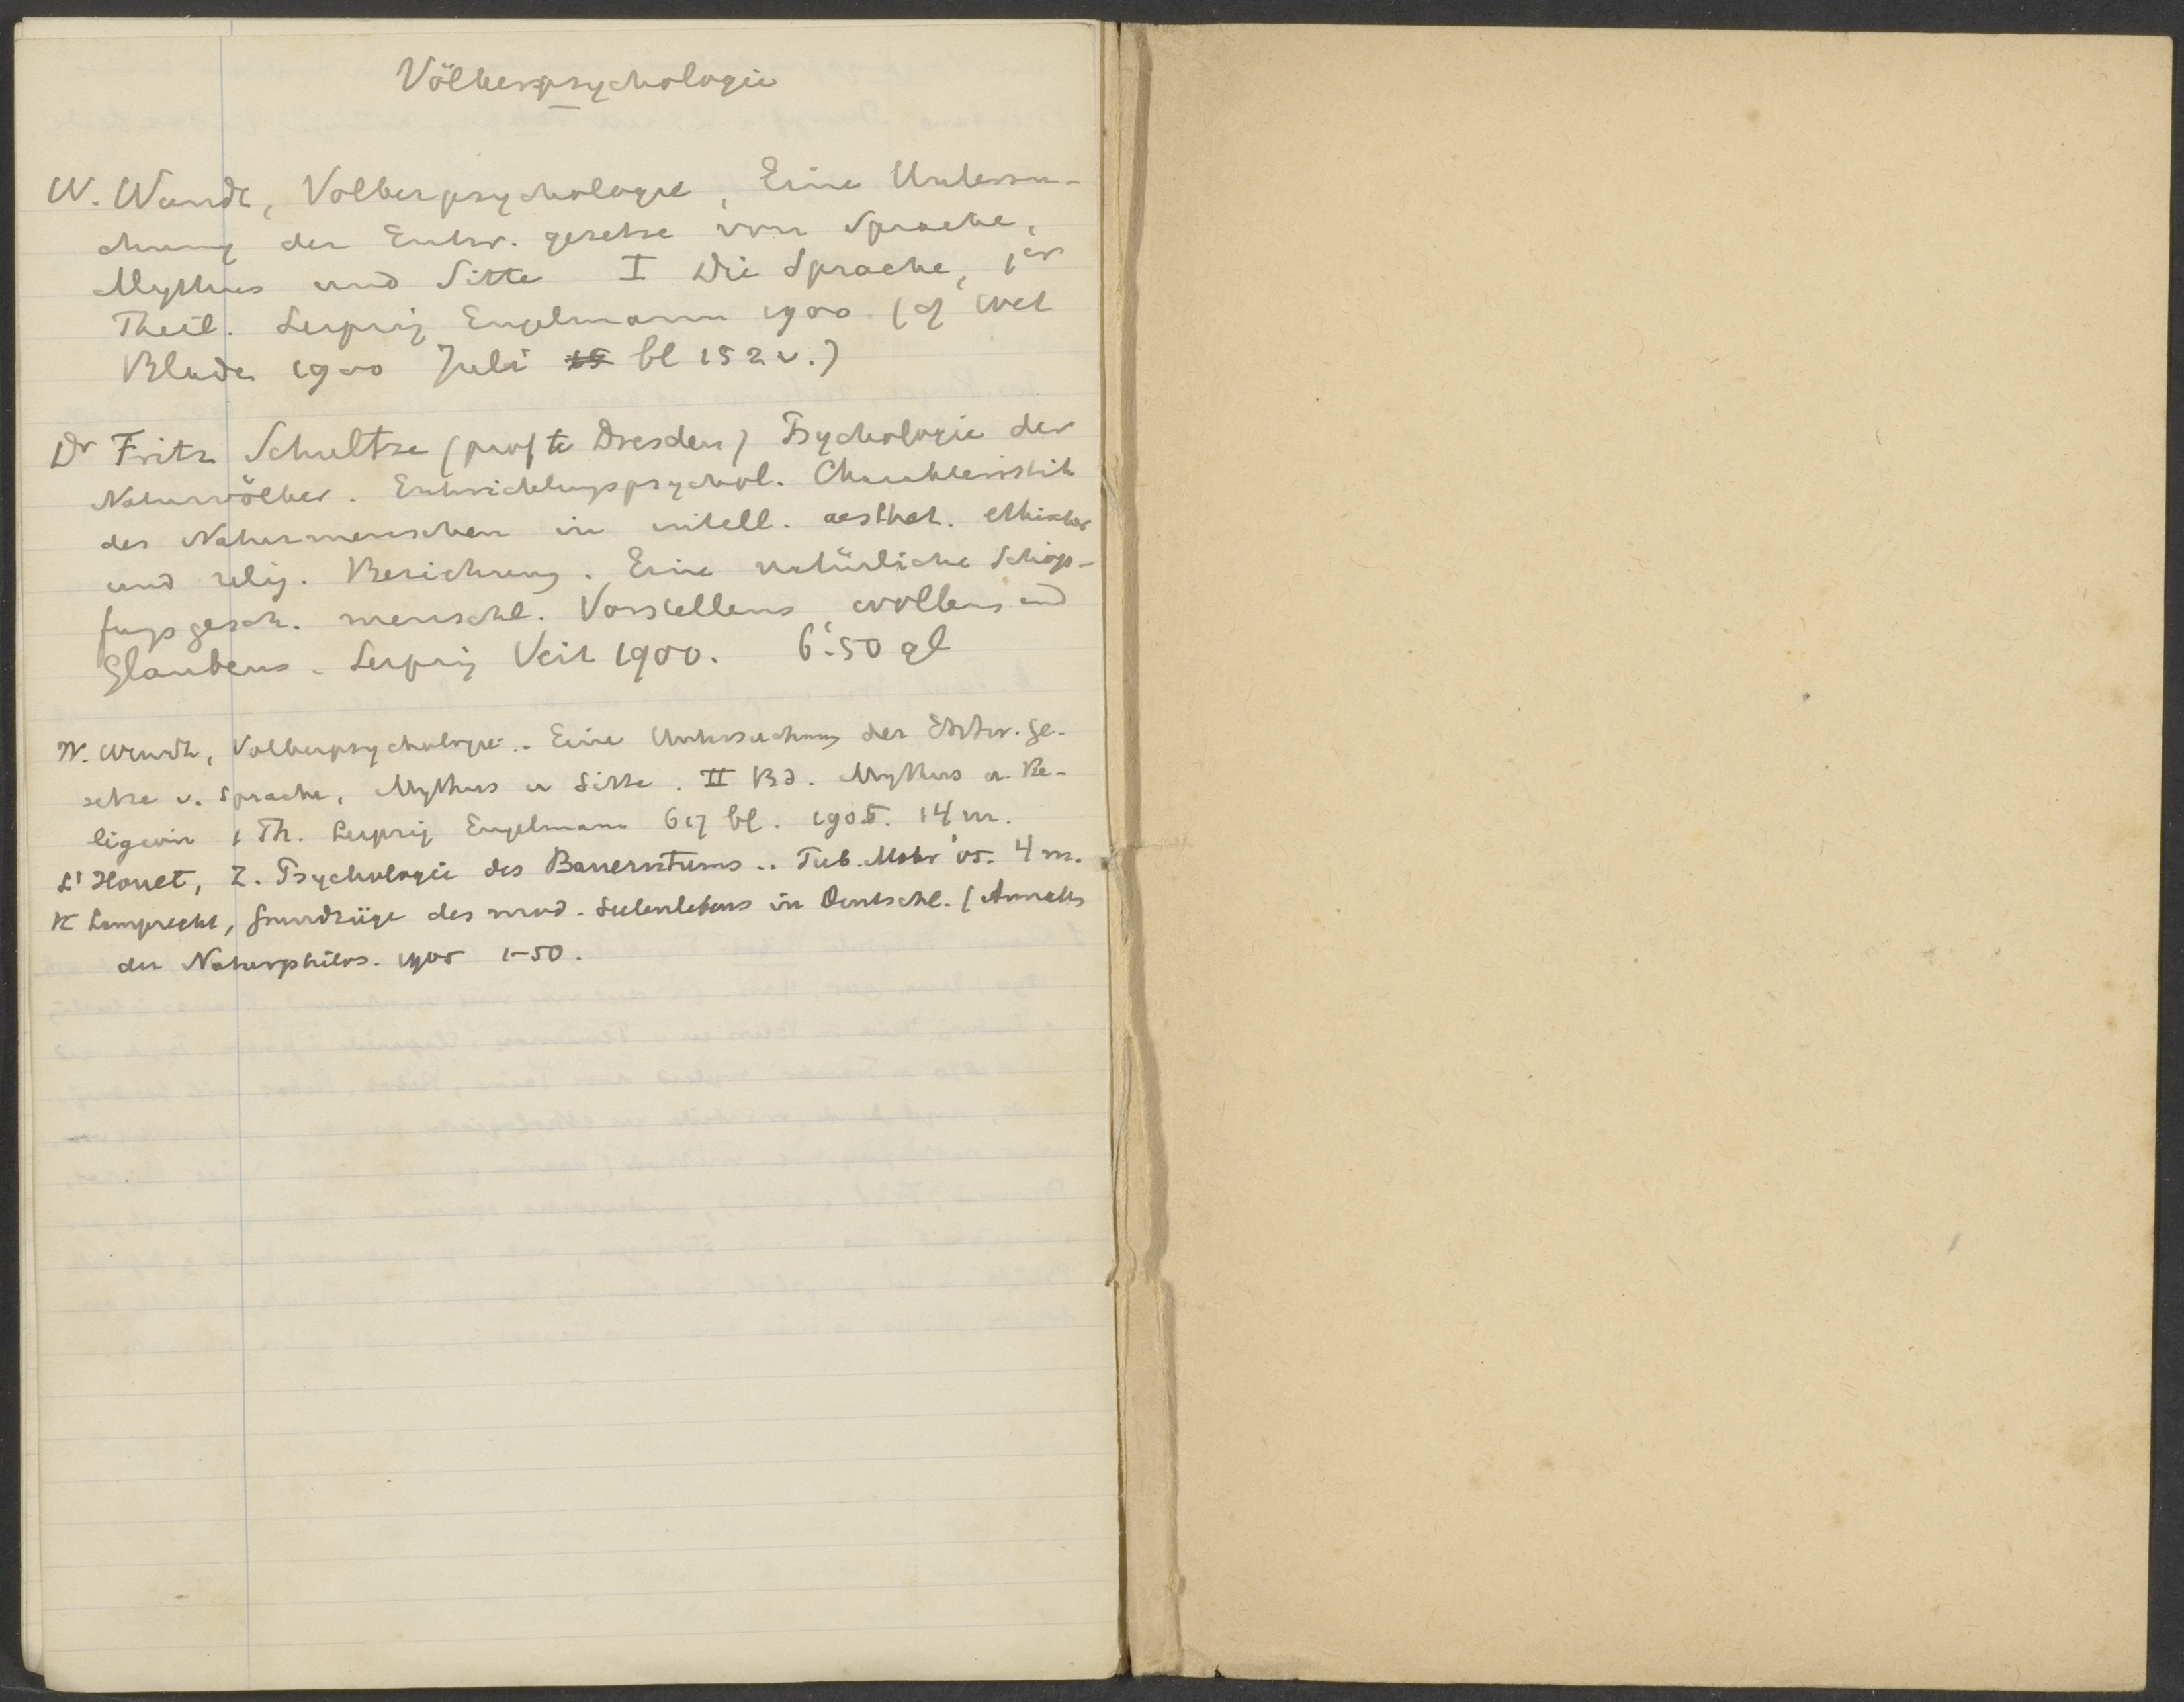 Völkerpsychologie
W. Wundt, Volkerpsychologie, Eine Untersu-
chung der Entw. gesetze von Sprache,
Mythus und Sitte I Die Sprache, 1er
Theil. Leipzig Engelmann 1900. (cf Wet
Blade 1900 Juli 15 bl 152 v.)
Dr Fritz Schultze (prof te Dresden) Psychologie der
Naturvölker. Entwicklungspsychol. Charakteristik
des Naturmenschen in intell. aesthet. ethischer
und relig. Beziehung. Eine natürliche Schöp-
fungsgesch. menschl. Vorstellens, wollens und
Glaubens. Leipzig Veit 1900. 6.50 gl
W. Wundt, Volkerpsychologie.. Eine Untersuchung der Entw. ge-
setze v. Sprache, Mythus u Sitte. II Bd. Mythus u. Re-
ligion 1 Th. Leipzig Engelmann 617 bl. 1905. 14 m.
L'Houet, Z. Psychologie des Bauerntums.. Tub. Mohr '05. 4 m.
K Lamprecht, Grundzüge des mod. Seelenlebens in Deutschl. (Annalen
der Naturphilos. 1905 1-50.